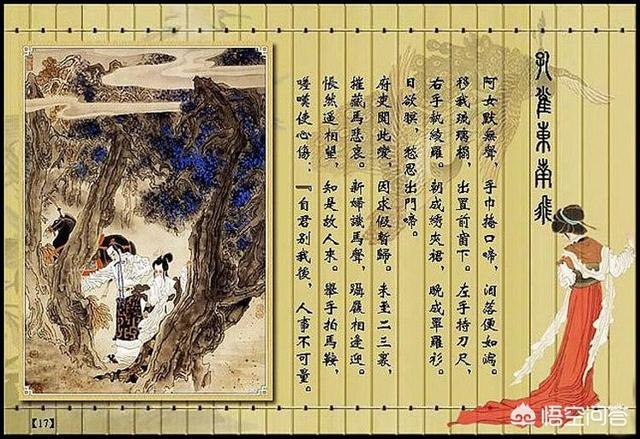 孔雀東南飛
阿女默無聲，手巾掩口啼，泪落便如瀉。
移我琉璃榻，出置前窗下。左手持刀尺，
右手執綾羅。朝成綉夾裙，晚成單羅衫。
日欲暝，愁思出門啼。
府吏聞此變，因求假暫歸。未至二三裏，
摧藏馬悲哀。新婦識馬聲，躡履相逢迎。
悵然遥相望，知是故人來。舉手拍馬鞍，
嗟嘆使心傷：『自君别我後，人事不可量。
【17】
悟空问答